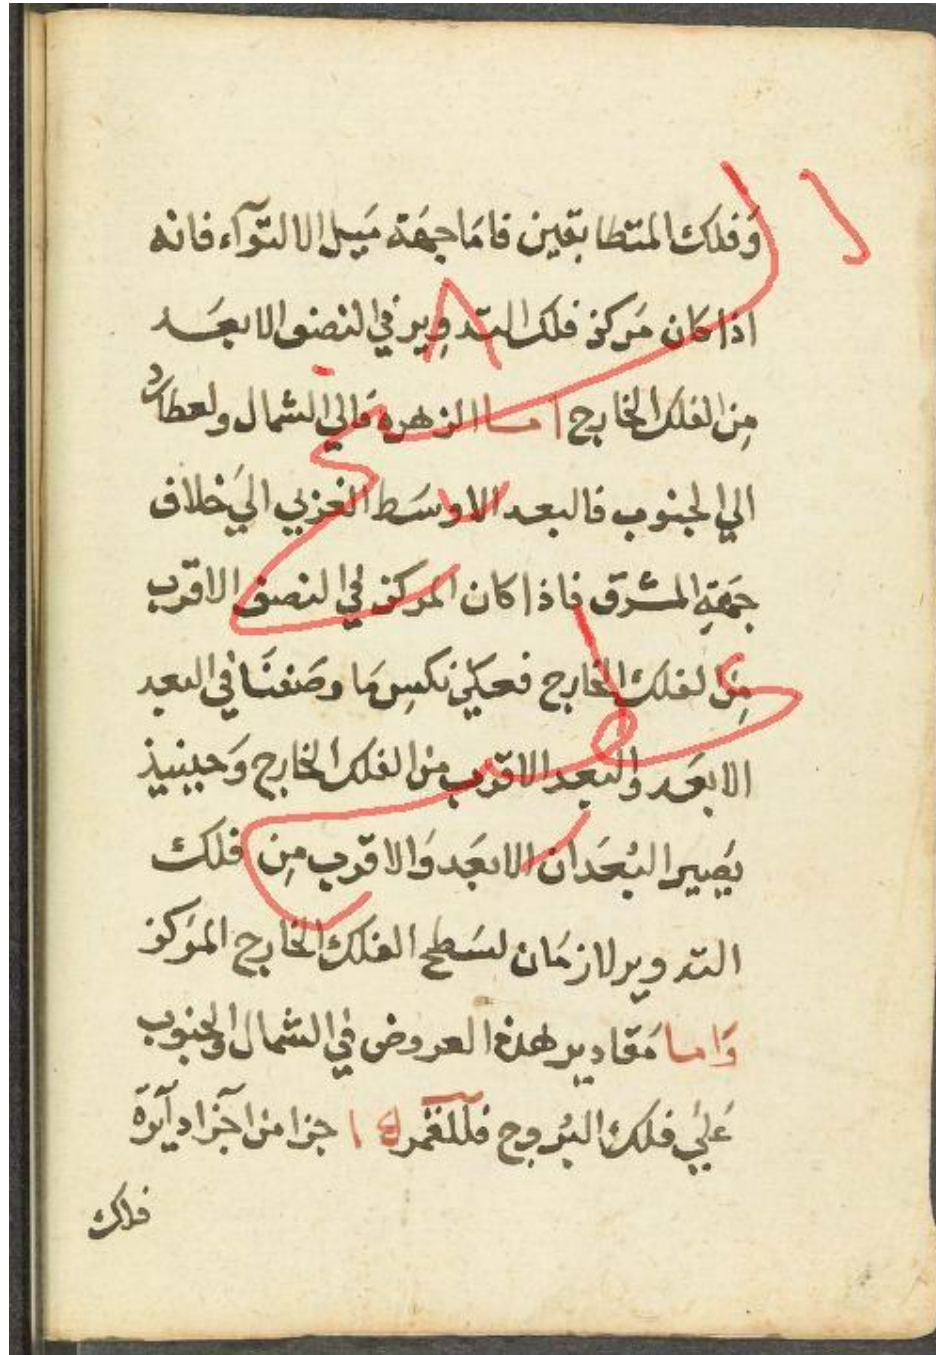 وَفلك المتطابقين فامَا جهَة مَيل الالتوآء فانه
اذا كان مَركز فلك التدوير في النصف الابعَد
مِن الفلك الخارج اما الزهره فالي الشمال ولعطارد
الي الجنوب فالبعد الاوسَط الغربي الي خلاف
جهَةِ المشرق فاذا كان المركز في النصف الاقرب
مِن الفلك الخارج فعلي نكسِ مَا وصَفنَا في البعد
الابعَد والبعد الاقرب من الفلك الخارج وَحينيذ
يَصير البُعدَان الابعَد وَالاقرب مِن فلك
التدوير لازمَان لسَطح الفلك الخارج المرَكز
وَاما مَقادير هذه العروض في الشمال والجنوب
عَلي فلك البُروج فللقمر جزا من آجزا دآيرَة
فلك